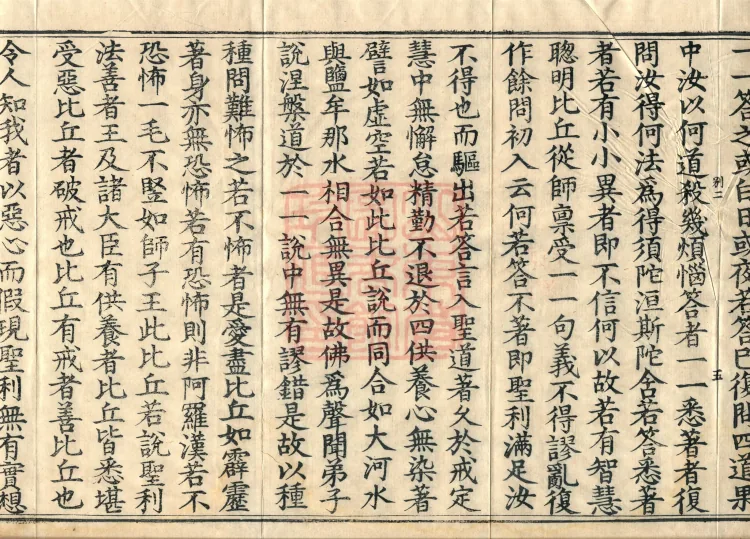 一一答之或白日或夜若答已復問四道果
中汝以何道殺幾煩惱答者一一悉著者復
問汝得何法為得須陀洹斯陀含若答悉著
者若有小小異者即不信何以故若有智慧
聰明比丘從師稟受一一句義不得謬亂復
作餘問初入云何若答不著即聖利滿足汝
不得也而驅出若答言入聖道著久於戒定
慧中無懈怠精勤不退於四供養心無染著
譬如虛空若如此比丘說而同合如大河水
與鹽牟那水相合無異是故佛為聲聞弟子
說涅槃道於一一說中無有謬錯是故以種
種問難怖之若不怖者是愛盡比丘如霹靂
著身亦無恐怖若有恐怖則非阿羅漢若不
恐怖一毛不豎如師子王此比丘若說聖利
法善者王及諸大臣有供養者比丘皆悉堪
受惡比丘者破戒也比丘有戒者善比丘也
令人知我者以惡心而假現聖利無有實想
別二
五